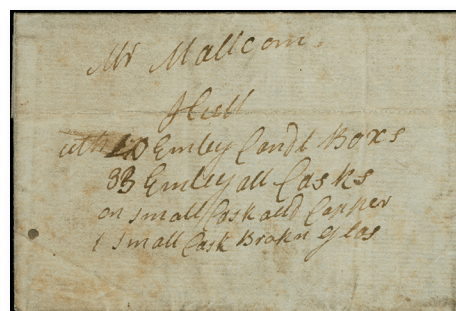 Mr Mallcom.
Hull
with 20 Emley Candl Boxs
33 Emley all Casks
on small Cosk auld Copper
1 small Cask Brokn glas